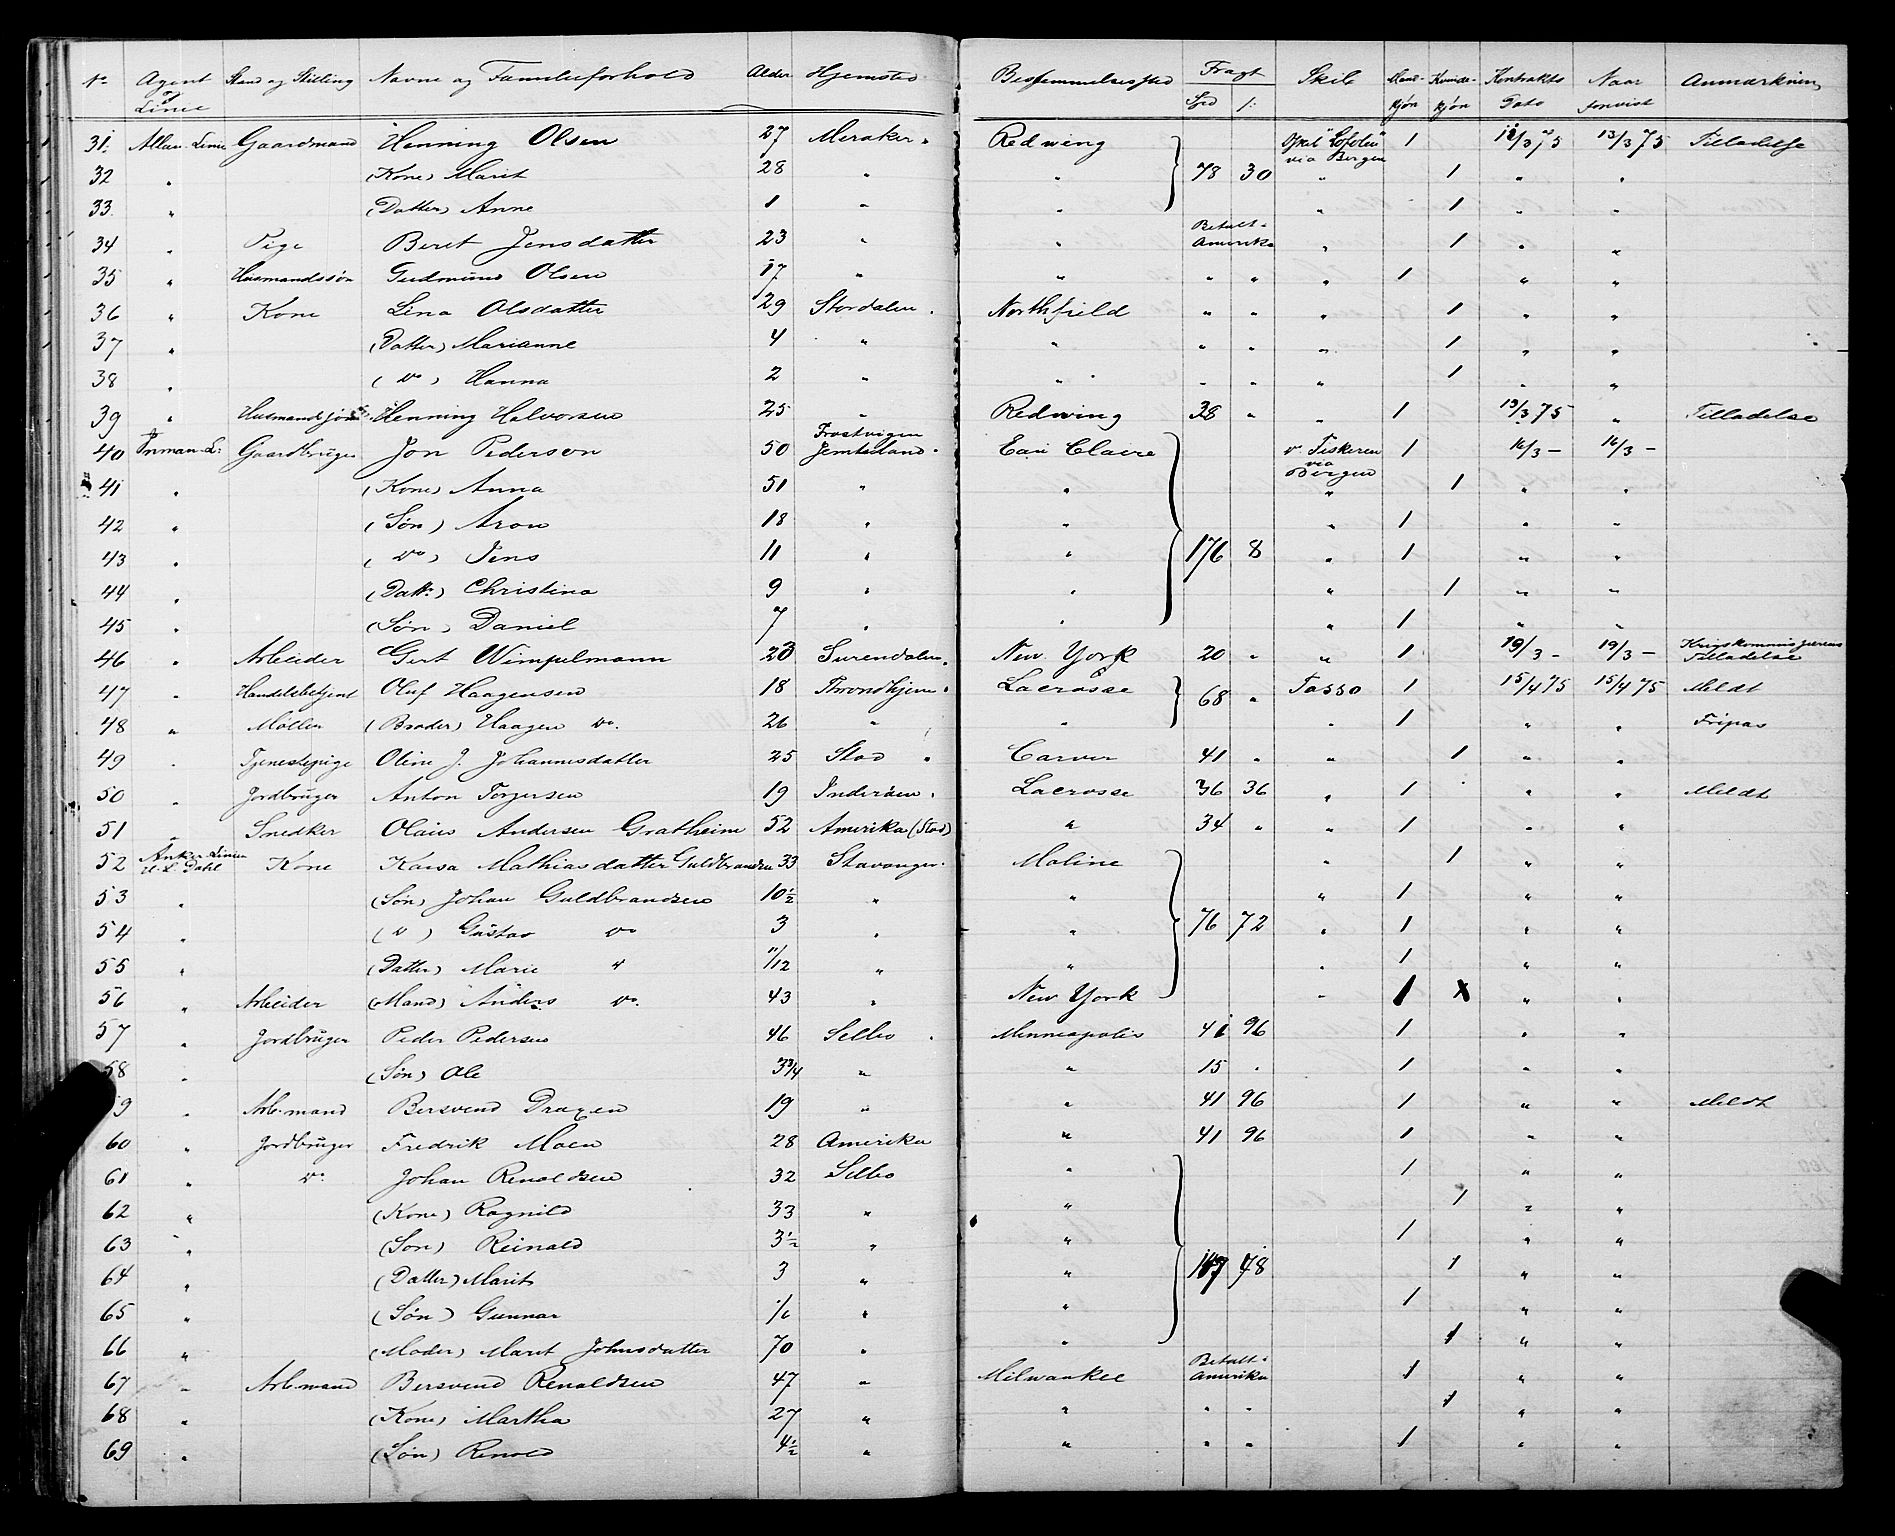 No Agent & Linie Stand og Stilling Navne og Familieforhold Alder Hjemsted Bestemmelsessted Fragt Spd /: Skib Mandkjøn Kvindekjøn Kontrakts Dato Naar forevist Anmærkning
31. Allan-Linie Gaardmand Henning Olsen 27 Meraker. Redwing Dskb "Lofoten" via Bergen 1 12/3 75 13/3 75 Tilladelse
32 " (Kone) Marit 28 " " 78 30 " 1 " "
33. " (Datter) Anne 1 " " " 1 " "
34 " Pige Beret Jensdatter 23 " " Betalt i Amerika " 1 " "
35 " Husmandssøn Gudmund Olsen 17 " " " " " 1 " "
36 " Kone Lina Olsdatter 29 Stordalen. Northfield " " " 1 " "
37 " (Datter) Marianne 4 " " " " " 1 " "
38 " (do) Hanna 2 " " " " " 1 " "
39 " Husmandssøn Henning Halvorsen 25 " Redwing 38 " " 1 13/3 75 " Tilladelse
40 Inman-L: Gaardbruger Jon Pederson 50 Frostvigen Jemteland. Eau Claire v. Fiskeren via Bergen 1 16/3 – 16/3 –
41 " (Kone) Anna 51 " " " 1 " "
42 " (Søn) Aron 18 " " " 1 " "
43 " (do) Jens 11 " " 176 8 " 1 " "
44 " (Datt:) Christina 9 " " " 1 " "
45 " (Søn) Daniel 7 " " " 1 " "
46 " Arbeider Gert Wimpelmann 23 Surendalen. New York 20 " " 1 19/3 – 19/3 – Krigskommissærens Tilladelse
47 " Handelsbetjent Oluf Haagensen 18 Throndhjem. Lacrosse 68 " Tasso 1 15/4 75 15/4 75 Meldt
48 " Møller (Broder) Haagen do. 26 " " " 1 " " Fripas
49 " Tjenestepige Oline J. Johannesdatter 25 Stod " Carver 41 " " 1 " "
50 " Jordbruger Anton Torgersen 19 Inderøen. Lacrosse 36 36 " 1 " " Meldt
51 " Snedker Olaus Andersen Gratheim 52 Amerika (Stod) " 34 " " 1 " "
52 Anker-Linien H. L. Dahl Kone Kaisa Mathiasdatter Guldbrandsen 33 Stavanger. Moline " 1 " "
53 " (Søn) Johan Guldbrandsen 10½ " " " 1 " "
54 " (do) Gustav do 3 " " 76 72 " 1 " "
55 " (Datter) Marie " 11/12 " " " 1 " "
56 " Arbeider (Mand) Anders do. 43 " New York " 1 x " "
57 " Jordbruger Peder Pedersen 46 Selbo . Minneapolis 41 96 1 " "
58 " (Søn) Ole 3¾ " " 15 . 1 " "
59 " Arb.mand Bersvend Dragen 19 " " 41 96 1 " " Meldt
60 " Jordbruger Fredrik Moen 28 Amerika " 41 96 1 " "
61 " do. Johan Renaldsen 32 Selbo " 1 " "
62 " (Kone) Ragnild 33 " " 1 " "
63 " (Søn) Reinald 3½ " " 1 " "
64 " (Datter) Marit 3 " " 48 1 " "
65 " (Søn) Gunnar " " 1 " "
66 " (Moder) Marit Johnsdatter 70 " " 1 " "
67 " Arb.mand Bersvend Renaldsen 47 " Milwaukee Betalt i Amerika 1 " "
68 " (Kone) Martha 27 " " " " 1 " "
69 " (Søn) Renold 4½ " " " " 1 " "